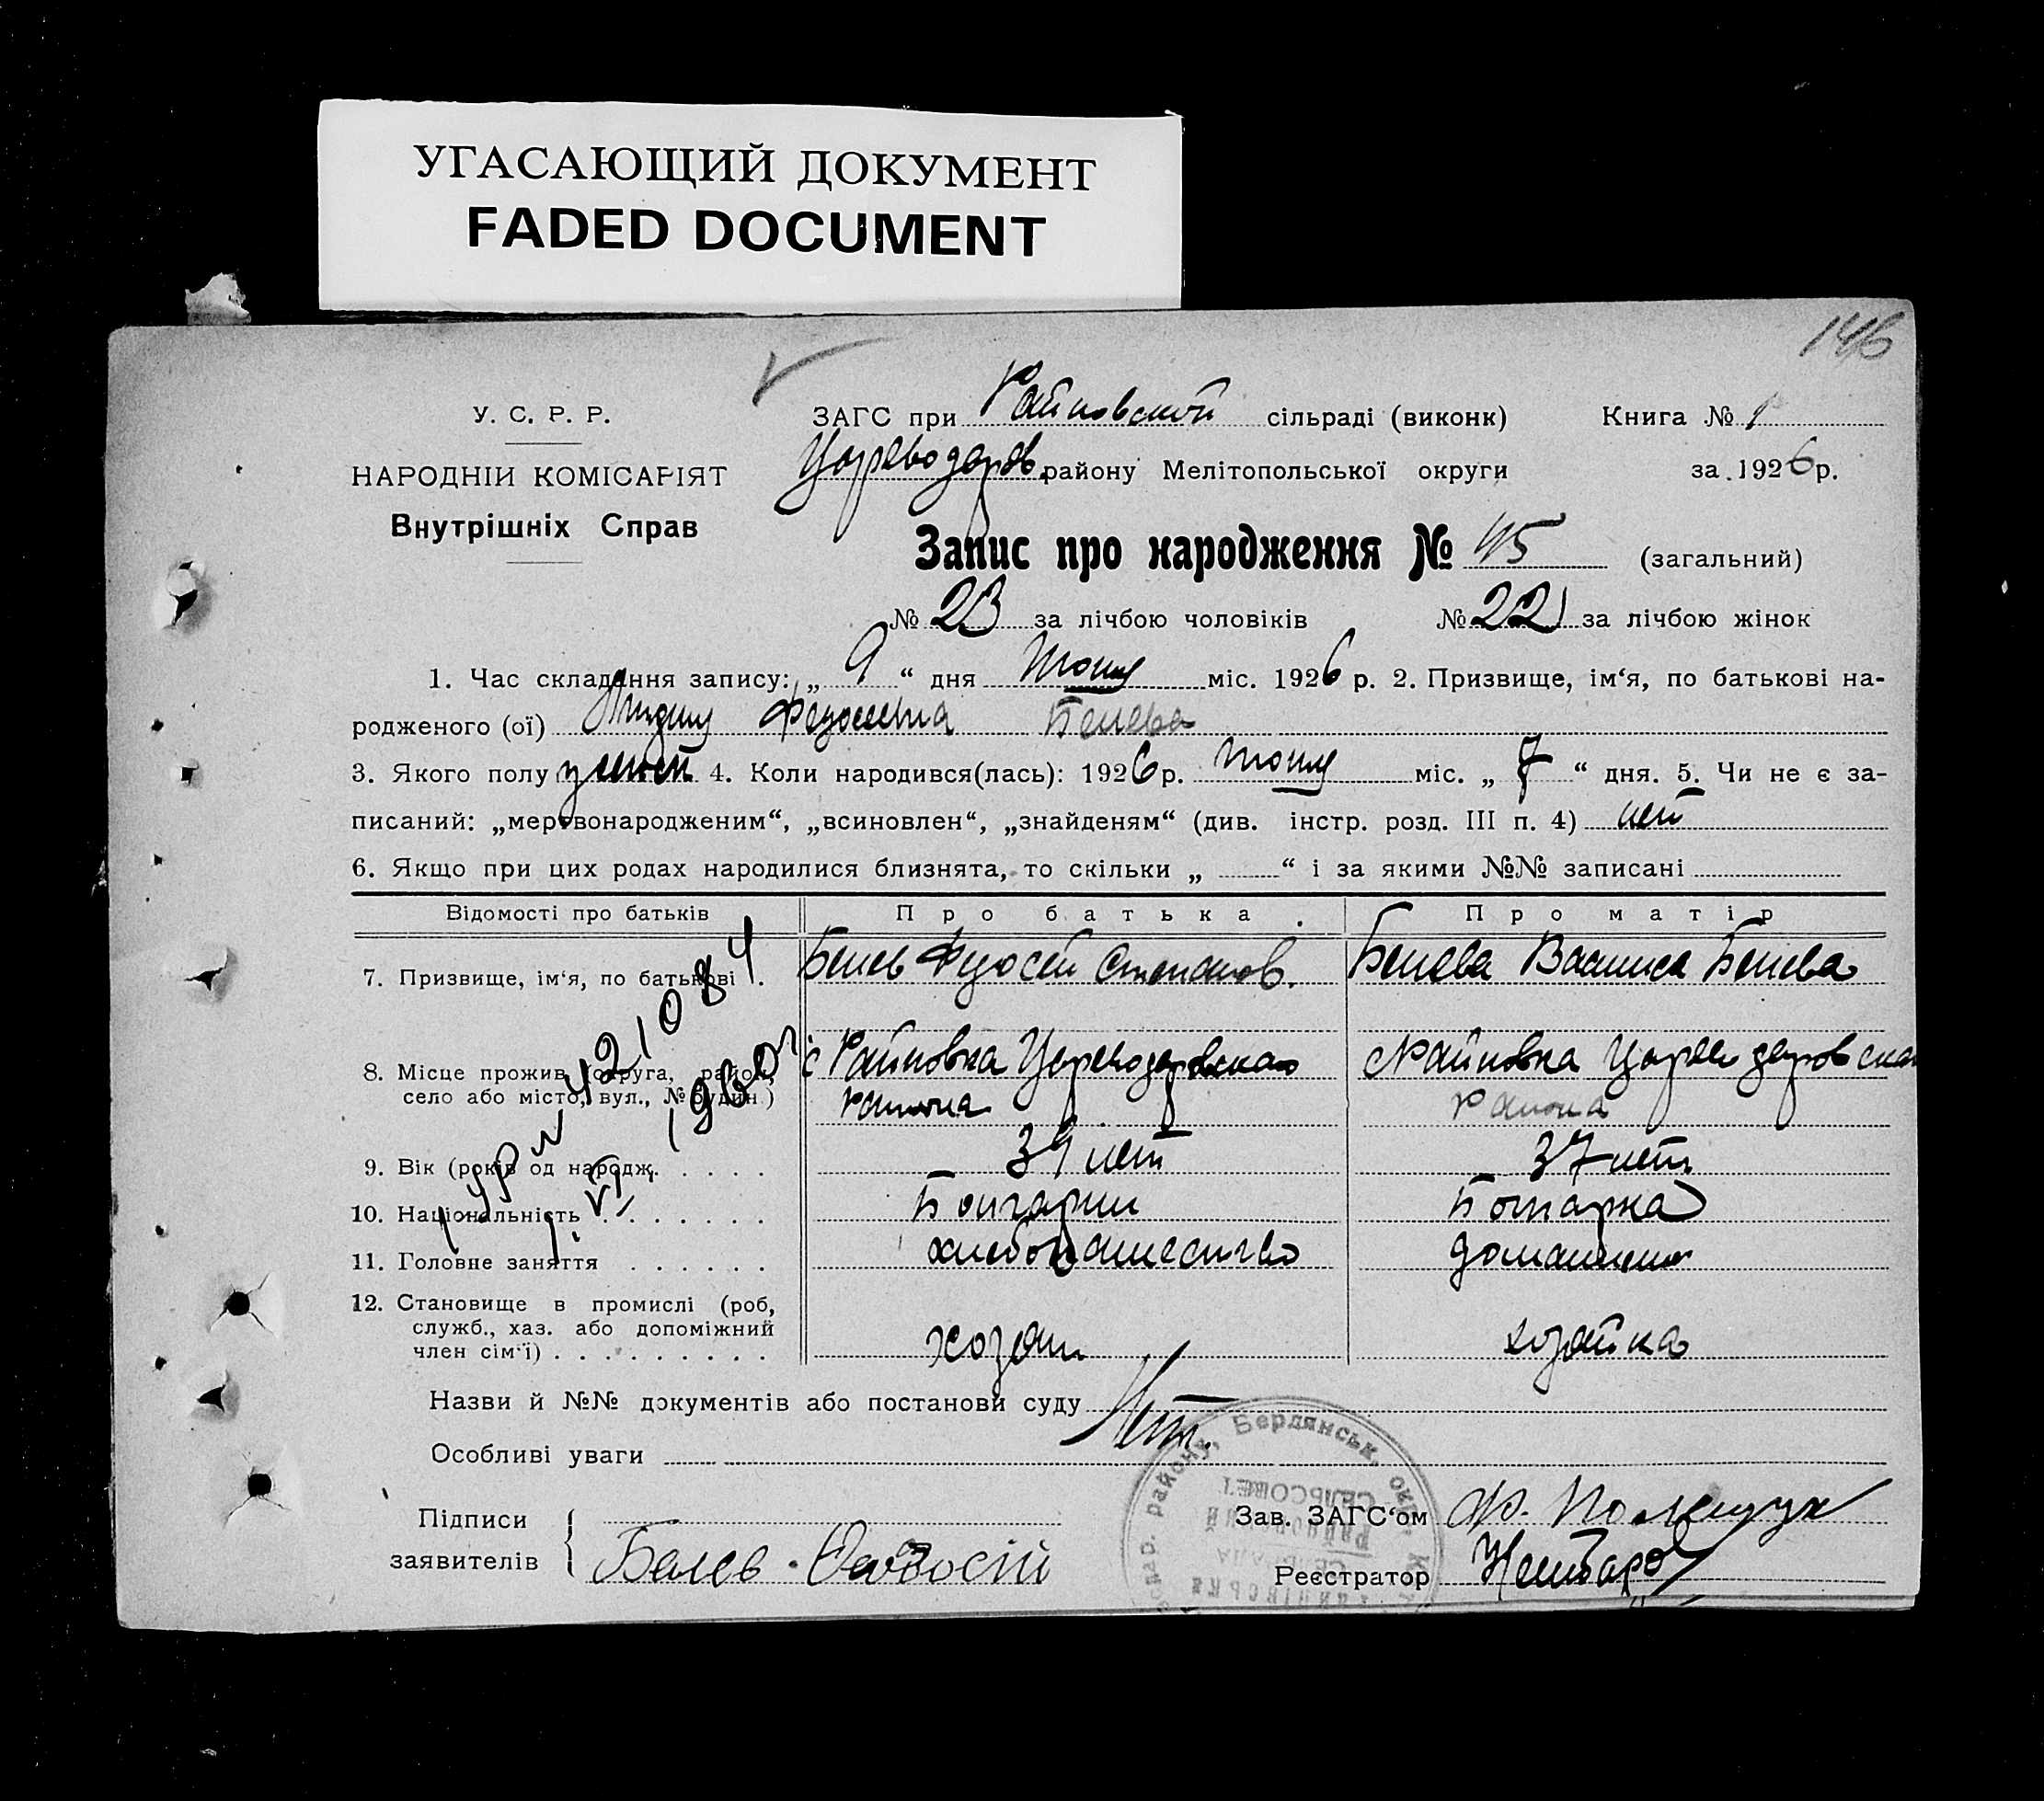 УГАСАЮЩИЙ ДОКУМЕНТ
FADED DOCUMENT
146
У. С. Р. Р.
НАРОДНІЙ КОМІСАРІЯТ
Внутрішніх Справ
ЗАГС при Райновской сільраді (виконк) Книга № 1
Цареводаров. району Мелітопольської округи за 1926 р.
Запис про народження № 45 (загальний)
№ 23 за лічбою чоловіків № 22 за лічбою жінок
1. Час складання запису: „ 9 “ дня міс. 1926 р. 2. Призвище, ім‘я, по батькові на-
родженого (ої) Белева
3. Якого полу 4. Коли народився(лась): 1926 р. міс. „ 7 “ дня. 5. Чи не є за-
писаний: „мертвонародженим“, „всиновлен“, „знайденям“ (див. інстр. розд. III п. 4) нет
6. Якщо при цих родах народилися близнята, то скільки „ “ і за якими №№ записані
Відомості про батьків Про батька Про матір
7. Призвище, ім‘я, по батькові . Белев Федосей Степанов. Белева Васлиса Белева
8. Місце прожив. (округа, район, с Райновка Цареводаровскаго с Райновка Цареводаровска
село або місто, вул., № будин.) района района
9. Вік (років од народж. 39 лет 37 лет
10. Національність Болгарин Болгарка
11. Головне заняття хлебопашество домашние
12. Становище в промислі (роб,
служб., хаз. або допоміжний
член сім‘ї) хозяин хозяйка
421084
1930 г
Назви й №№ документів або постанови суду Нет.
Особливі уваги
Підписи
заявителів Белев Федосій
Зав. ЗАГС‘ом Ф. Полещук
Реєстратор
району, Бердянськ. окр.
СЕЛЬСОВЕТ